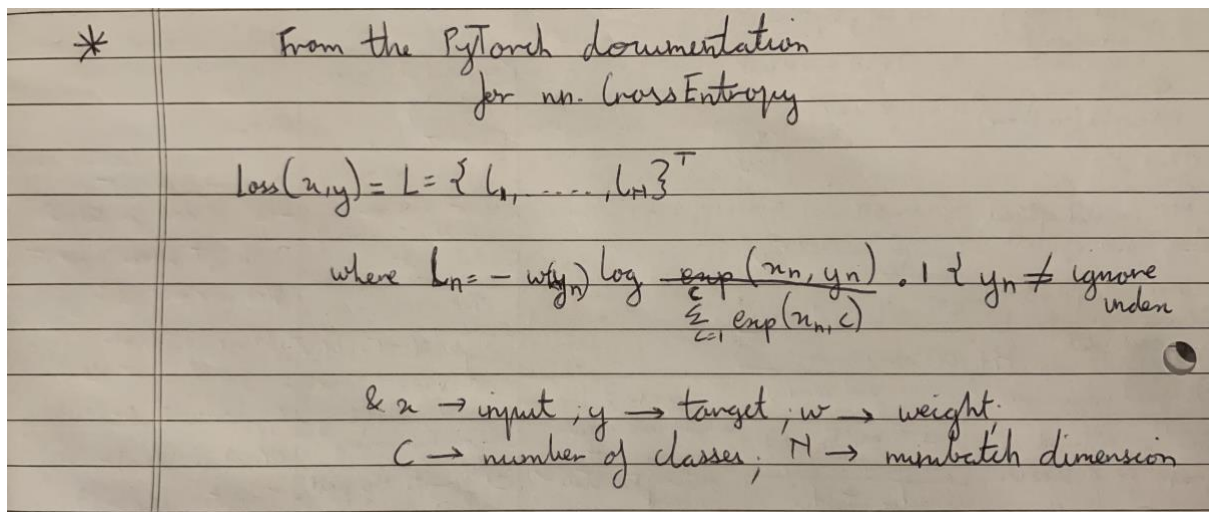 *
From the PyTorch documentation
for nn. CrossEntropy
Loss(x,y) = L = { l₁, ....., l_N }ᵀ
where l_n = - w(y_n) log exp(x_n, y_n) / Σ_{c=1}^{C} exp(x_n, c) . 1 { y_n ≠ ignore
index
& x → input ; y → target ; w → weight;
C → number of classes; N → minibatch dimension